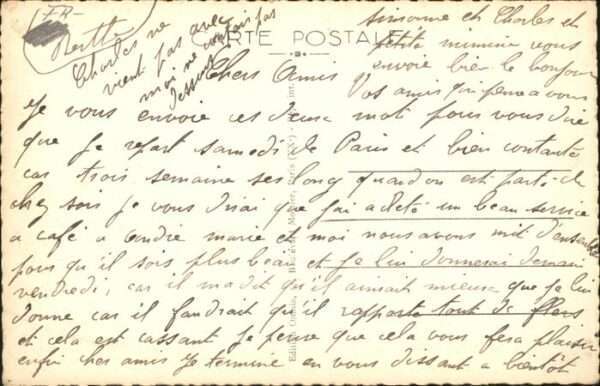 Berthe
Charles ne
vient pas avec
moi ne comptez pas
dessus
CARTE POSTALE
Simonne et Charles et
petite mimine vous
envoie bien le bonjour
Vos amis qui pense a vous
Chers Amis
Je vous envoie ces deux mot pour vous dire
que je repart samedi de Paris et bien contante
car trois semaine ses long quandon est parti de
chez sois je vous dirai que j'ai acheté un beau service
a café a andre marie et moi nous avons mit d'ensemble
pour qu'il sois plus beau et je lui donnerai demain
vendredi, car il m'a dit qu'il aimait mieux que je lui
donne car il faudrait qu'il rapporte tout de flers
et cela est cassant je pense que cela vous fera plaisir
enfin cher amis je termine en vous dissant a bientôt